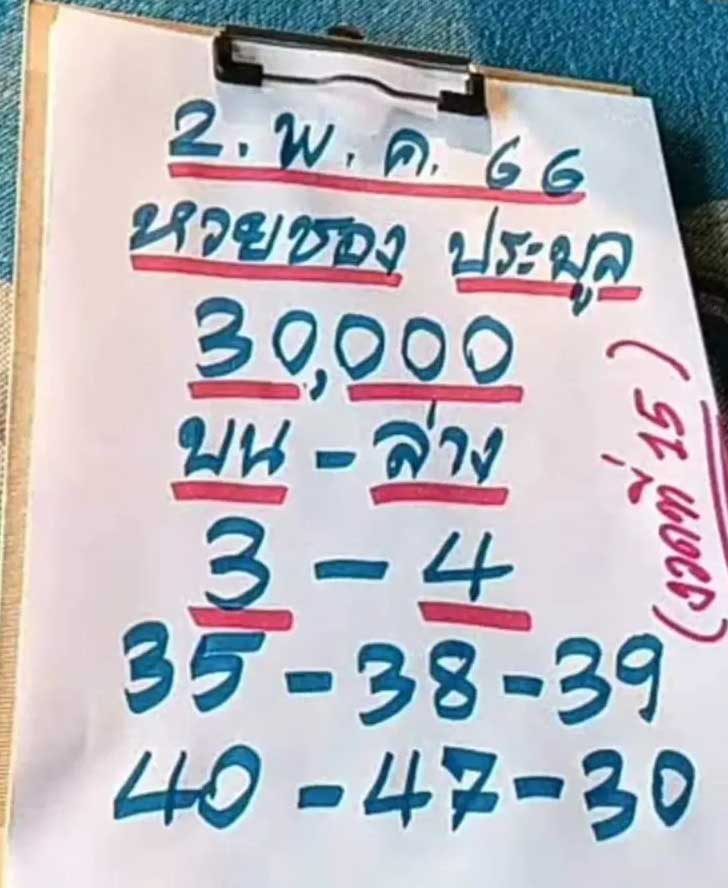 2. พ. ค. 66
หวยซอง ประมูล
30,000
บน - ล่าง
3 - 4
35 - 38 - 39
40 - 47 - 30
(งวดที่ 15)